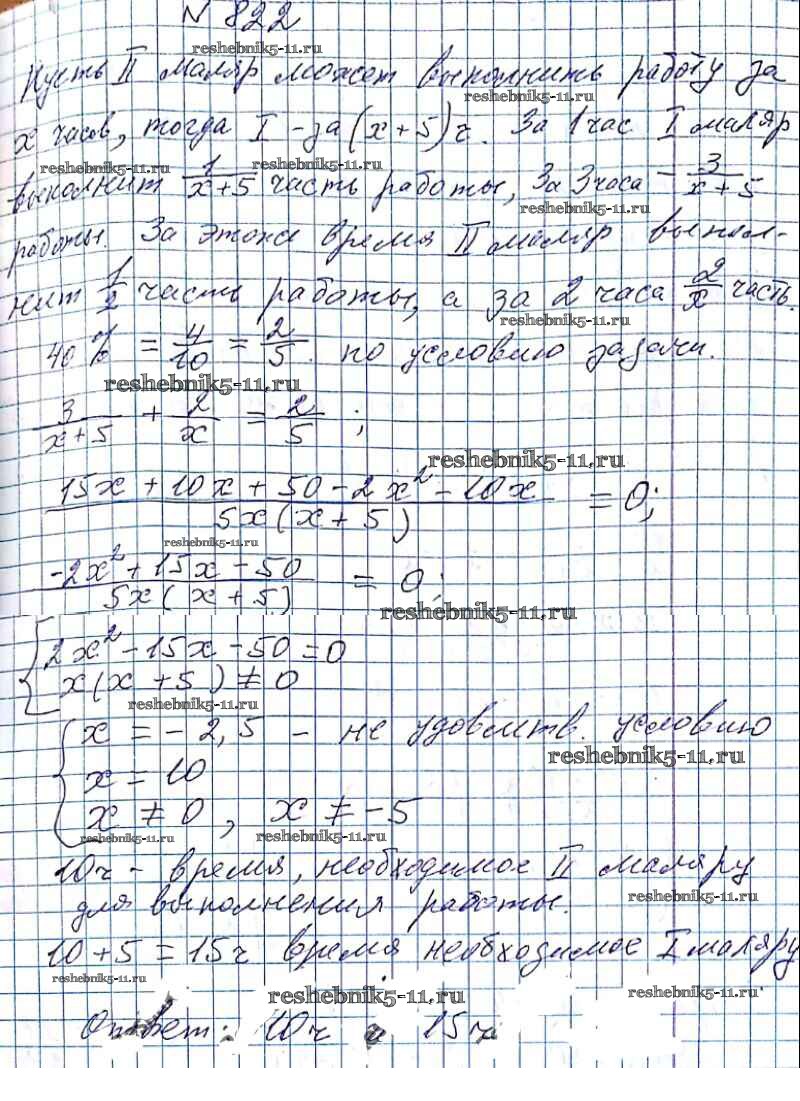 N 822
reshebnik5-11.ru
Пусть II маляр может выполнить работу за
reshebnik5-11.ru
x часов, тогда I - за (x+5) ч. За 1 час I маляр
reshebnik5-11.ru
reshebnik5-11.ru
выполнит 1/(x+5) часть работы, За 3 часа - 3/(x+5)
reshebnik5-11.ru
работы. За это же время II маляр выпол-
нит 1/2 часть работы, а за 2 часа 2/x часть.
reshebnik5-11.ru
40 % = 4/10 = 2/5 . по условию задачи.
reshebnik5-11.ru
3/(x+5) + 2/x = 2/5 ;
reshebnik5-11.ru
(15x + 10x + 50 - 2x² - 10x)/(5x(x+5)) = 0;
reshebnik5-11.ru
(-2x² + 15x - 50)/(5x(x+5)) = 0;
reshebnik5-11.ru
{ 2x² - 15x - 50 = 0
x(x+5) ≠ 0
reshebnik5-11.ru
{ x = - 2,5 - не удовлтв. условию
reshebnik5-11.ru
x = 10
x ≠ 0, x ≠ -5
reshebnik5-11.ru
reshebnik5-11.ru
10ч - время, необходимое II маляру
reshebnik5-11.ru
для выполнения работы.
10 + 5 = 15ч время необходимое I маляру
reshebnik5-11.ru
reshebnik5-11.ru
reshebnik5-11.ru
Ответ: 10ч и 15ч